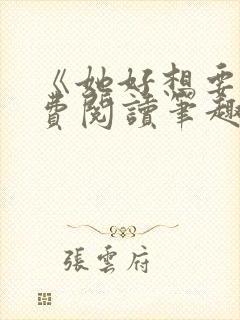 《她好想要
費閱讀筆趣
張雲府